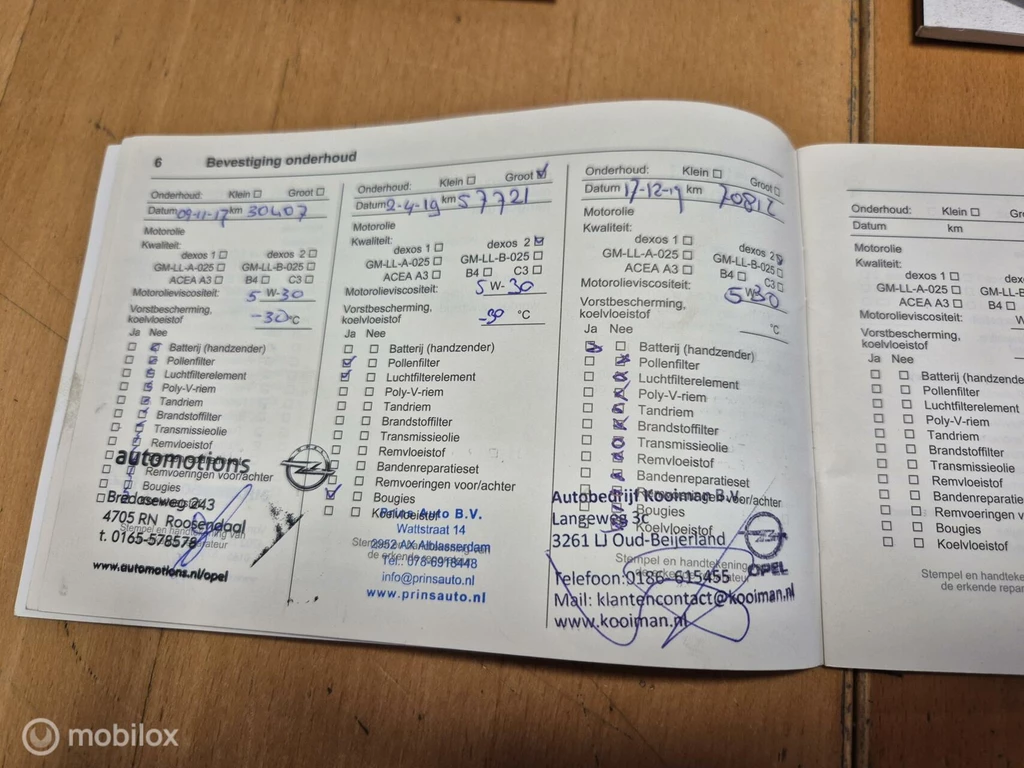 6 Bevestiging onderhoud
Onderhoud: Klein ☐ Groot ☐
Datum 09-11-17 km 30407
Motorolie
Kwaliteit:
dexos 1 ☐ dexos 2 ☐
GM-LL-A-025 ☐ GM-LL-B-025 ☐
ACEA A3 ☐ B4 ☐ C3 ☐
Motorolieviscositeit: 5 W-30
Vorstbescherming,
koelvloeistof -30 °C
Ja Nee
☐ ☑ Batterij (handzender)
☐ ☑ Pollenfilter
☐ ☑ Luchtfilterelement
☐ ☑ Poly-V-riem
☐ ☑ Tandriem
☐ ☑ Brandstoffilter
☐ ☑ Transmissieolie
☐ ☑ Remvloeistof
automotions
Remvoeringen voor/achter
Bougies
Bredaseweg 243
4705 RN Roosendaal
Stempel en handtekening van
t. 0165-578578
www.automotions.nl/opel
Onderhoud: Klein ☐ Groot ☑
Datum 2-4-19 km 57721
Motorolie
Kwaliteit:
dexos 1 ☐ dexos 2 ☑
GM-LL-A-025 ☐ GM-LL-B-025 ☐
ACEA A3 ☐ B4 ☐ C3 ☐
Motorolieviscositeit: 5 W-30
Vorstbescherming,
koelvloeistof -30 °C
Ja Nee
☐ ☐ Batterij (handzender)
☑ ☐ Pollenfilter
☑ ☐ Luchtfilterelement
☐ ☐ Poly-V-riem
☐ ☐ Tandriem
☐ ☐ Brandstoffilter
☐ ☐ Transmissieolie
☐ ☐ Remvloeistof
☐ ☐ Bandenreparatieset
☐ ☐ Remvoeringen voor/achter
☑ ☐ Bougies
☐ ☐ Koelvloeistof
Prins Auto B.V.
Wattstraat 14
2952 AX Alblasserdam
de erkende reparateur
Tel.: 078-6918448
info@prinsauto.nl
www.prinsauto.nl
Onderhoud: Klein ☐ Groot ☐
Datum 17-12-19 km 70812
Motorolie
Kwaliteit:
dexos 1 ☐ dexos 2 ☑
GM-LL-A-025 ☐ GM-LL-B-025 ☐
ACEA A3 ☐ B4 ☐ C3 ☐
Motorolieviscositeit: 5 W30
Vorstbescherming,
koelvloeistof °C
Ja Nee
☑ ☐ Batterij (handzender)
☐ ☑ Pollenfilter
☐ ☑ Luchtfilterelement
☐ ☑ Poly-V-riem
☐ ☑ Tandriem
☐ ☑ Brandstoffilter
☐ ☑ Transmissieolie
☐ ☑ Remvloeistof
☐ ☑ Bandenreparatieset
☐ ☑ Remvoeringen voor/achter
☐ ☑ Bougies
☐ ☑ Koelvloeistof
Autobedrijf Kooiman B.V.
Langeweg 3c
3261 LJ Oud-Beijerland
Stempel en handtekening
OPEL
Telefoon:0186-615455
Mail: klantencontact@kooiman.nl
www.kooiman.nl
Onderhoud: Klein ☐
Datum km
Motorolie
Kwaliteit:
dexos 1 ☐
GM-LL-A-025 ☐
ACEA A3 ☐ B4
Motorolieviscositeit:
Vorstbescherming,
koelvloeistof
Ja Nee
☐ ☐ Batterij (handzender
☐ ☐ Pollenfilter
☐ ☐ Luchtfilterelement
☐ ☐ Poly-V-riem
☐ ☐ Tandriem
☐ ☐ Brandstoffilter
☐ ☐ Transmissieolie
☐ ☐ Remvloeistof
☐ ☐ Bandenreparatie
☐ ☐ Remvoeringen vo
☐ ☐ Bougies
☐ ☐ Koelvloeistof
Stempel en handteke
de erkende repara
mobilox